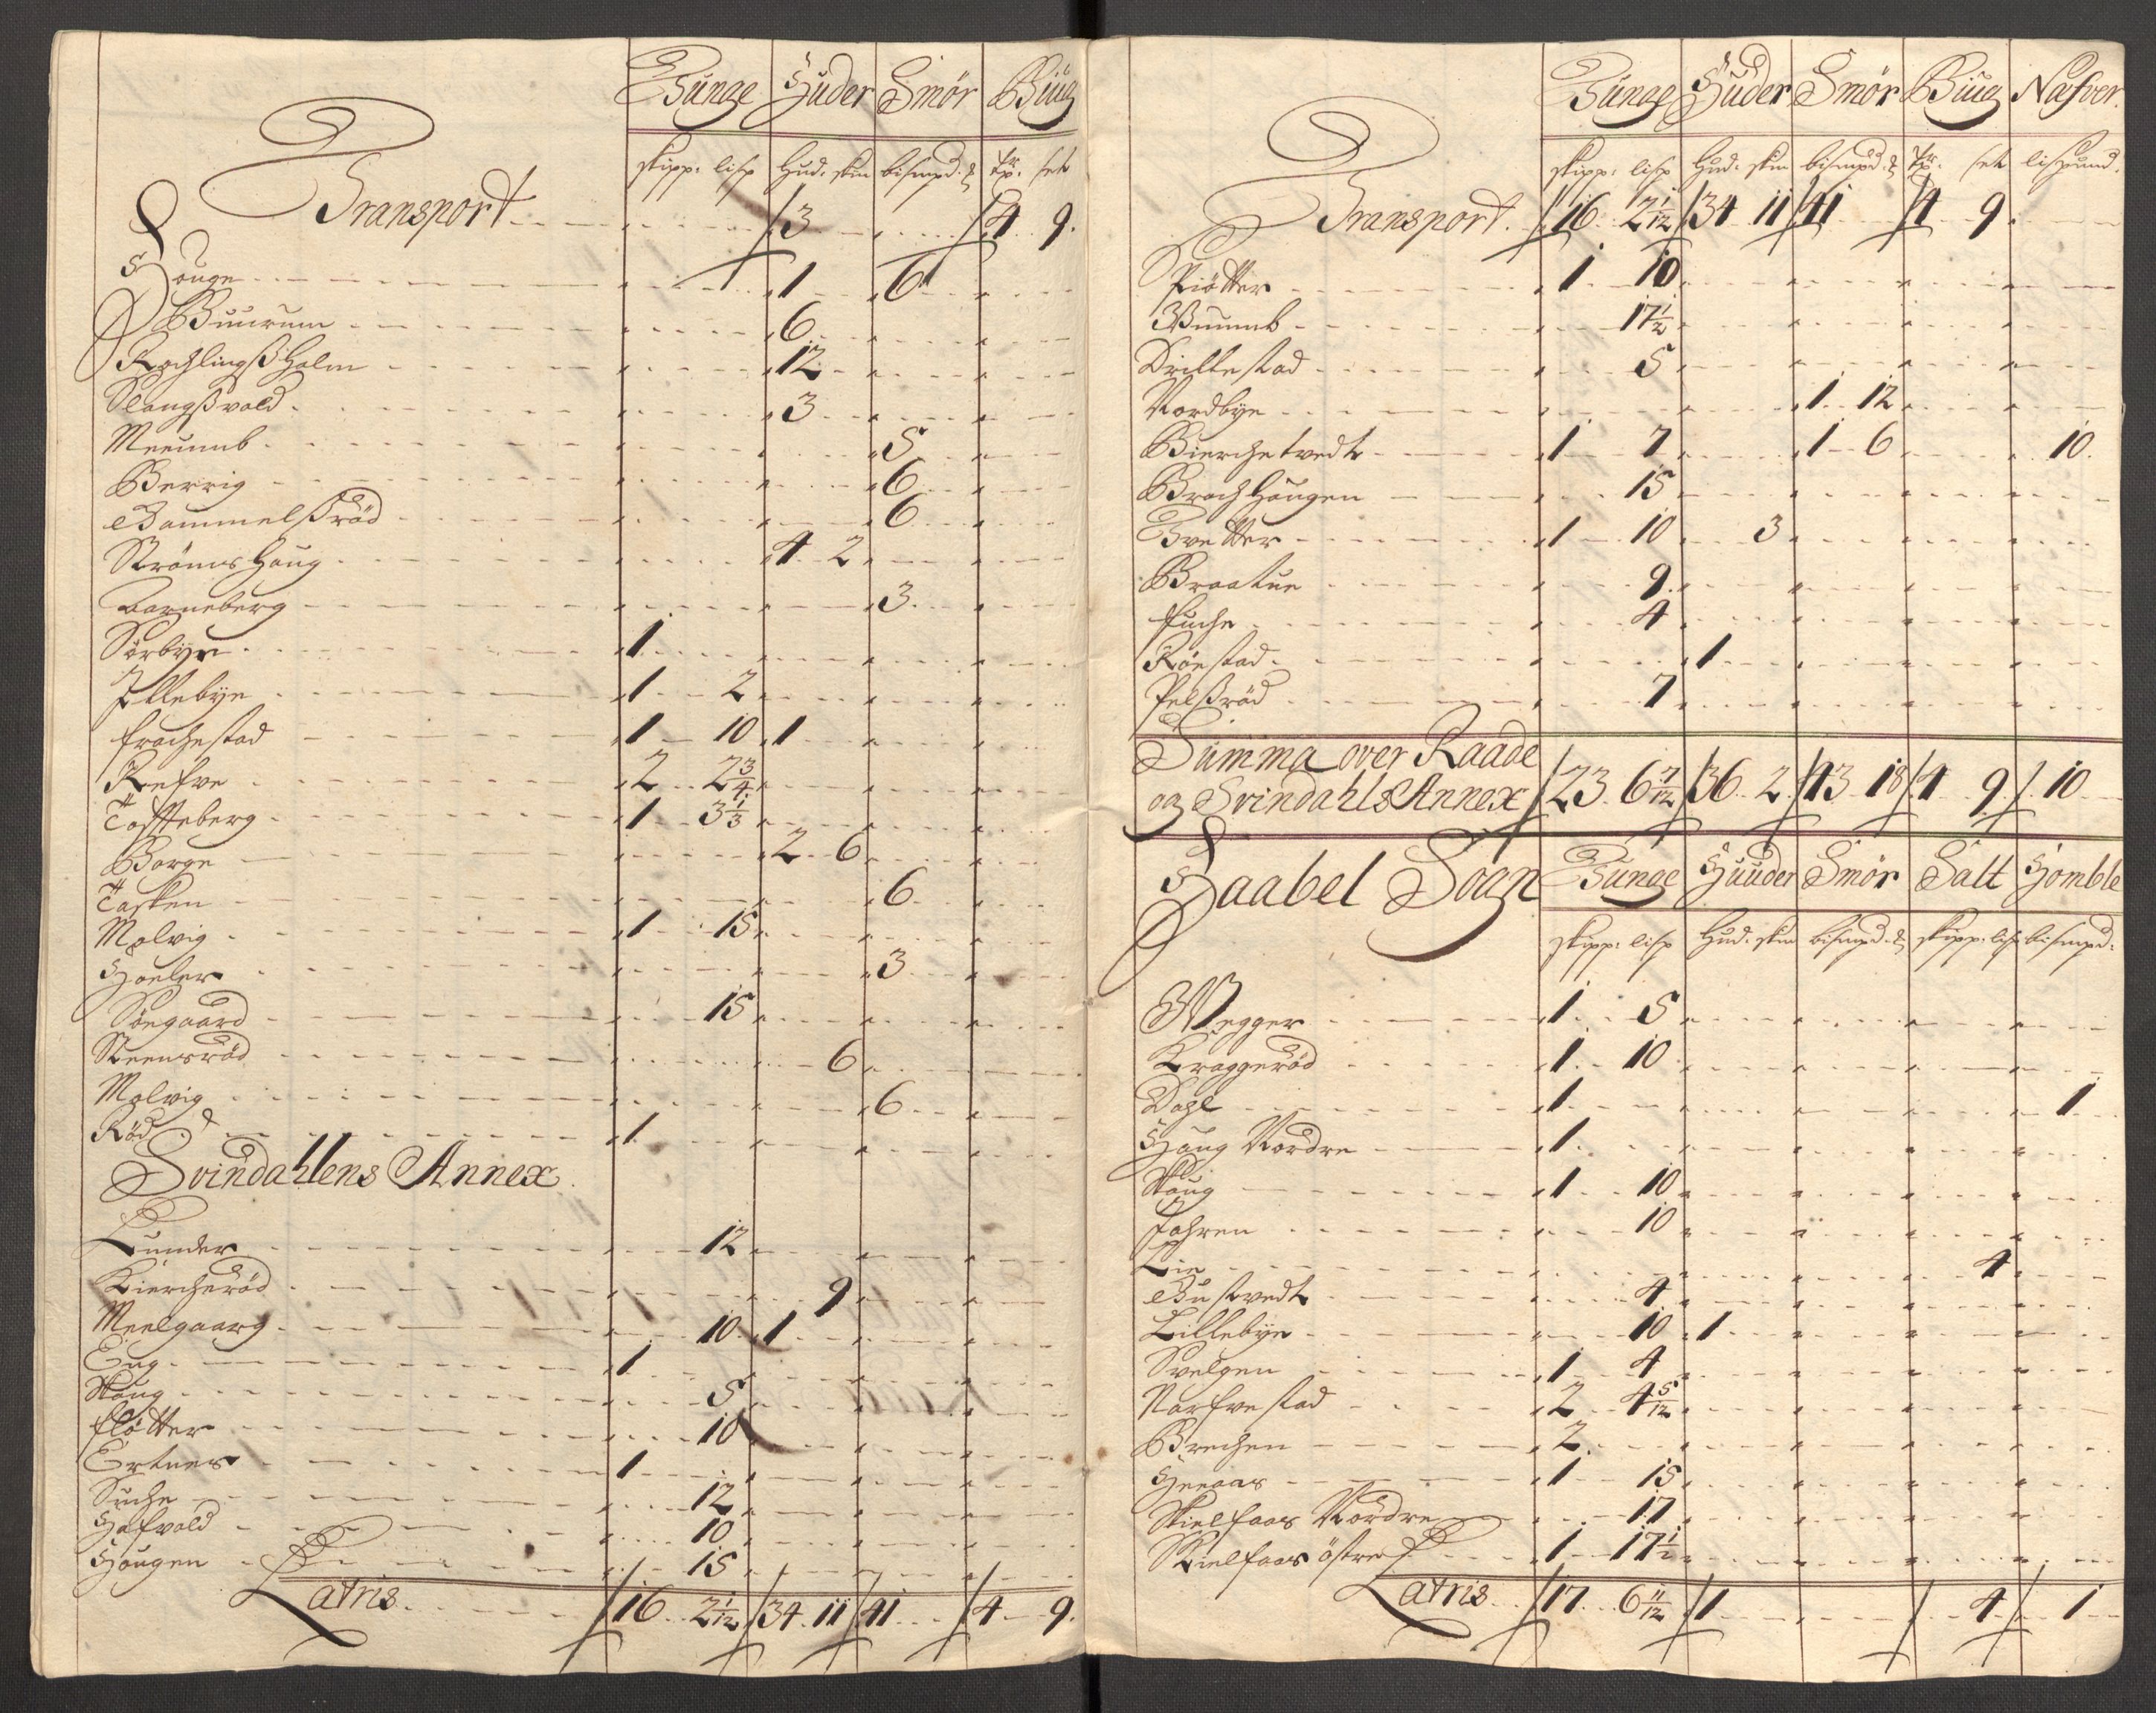 Tunge Huder Smör Biug
skipp: lisp Hud: skin bismpd: tr: set
Transport 3 4 9.
Houge 1 6
Buurum 6
Rochlingßholm 12
Slangßvold 3
Meeumb 5
Berrig 6
Gammelßröd 6
Strömshaug 4 2
Carneberg 3
Sörbye 1
Illebye 1 2
Frochestad 1 10 1
Refve 2 2 3/4
Tofteberg 1 3 1/3
Borge 2 6
Tasken 6
Molvig 1 15
Hoeler 3
Söegaard 15
Steensröd 6
Molvig 6
Röd 1
Svindahlens Annex
Lunder 12
Kiercheröd 9
Meelgaarg 10 1
Eng 1
Skoug 5
Flötter 10
Ertnes 1
Suche 12
Hafvold 10
Hougen 15
Latris 16 2 1/12 34 11 41 4 9.
Tunge Huder Smör Biug Næfver.
skipp: lisp Hud: skin bismpd: tr: set lispund.
Transport. 16 2 1/12 34 11 41 4 9.
Kiötter 1 10
Wuumb 17 1/2
Drillestad 5
Nordbye 1 12
Bierchetvedt 1 7 1 6 10.
Brochhougen 15
Tvetter 1 10 3
Braatue 9.
Fuche 4
Röestad 1
Pelßröd 7
Summa over Raade
og Svindahls Annex 23 6 7/12 36 2 43 18 4 9 10
Haabel Sogn Tunge Huuder Smör Salt Homble
skipp: lisp Hud: skin bismpd: skipp: lisp bismpd:
Wegger 1 5
Kraggeröd 1 10
Dahl 1 1
Houg Nordre 1
Skoug 1 10
Fahren 10
Lie 4
Gustvedt 4
Lillebye 10 1
Svelgen 1 4
Narfvestad 2 4 5/12
Brechen 2
Heeaas 1 15
Skielfaas Nordre 17
Skielfaas östre 1 17 1/2
Latris 17 6 11/12 1 4 1